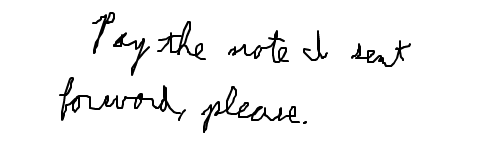 Pay the note I sent
forward, please.